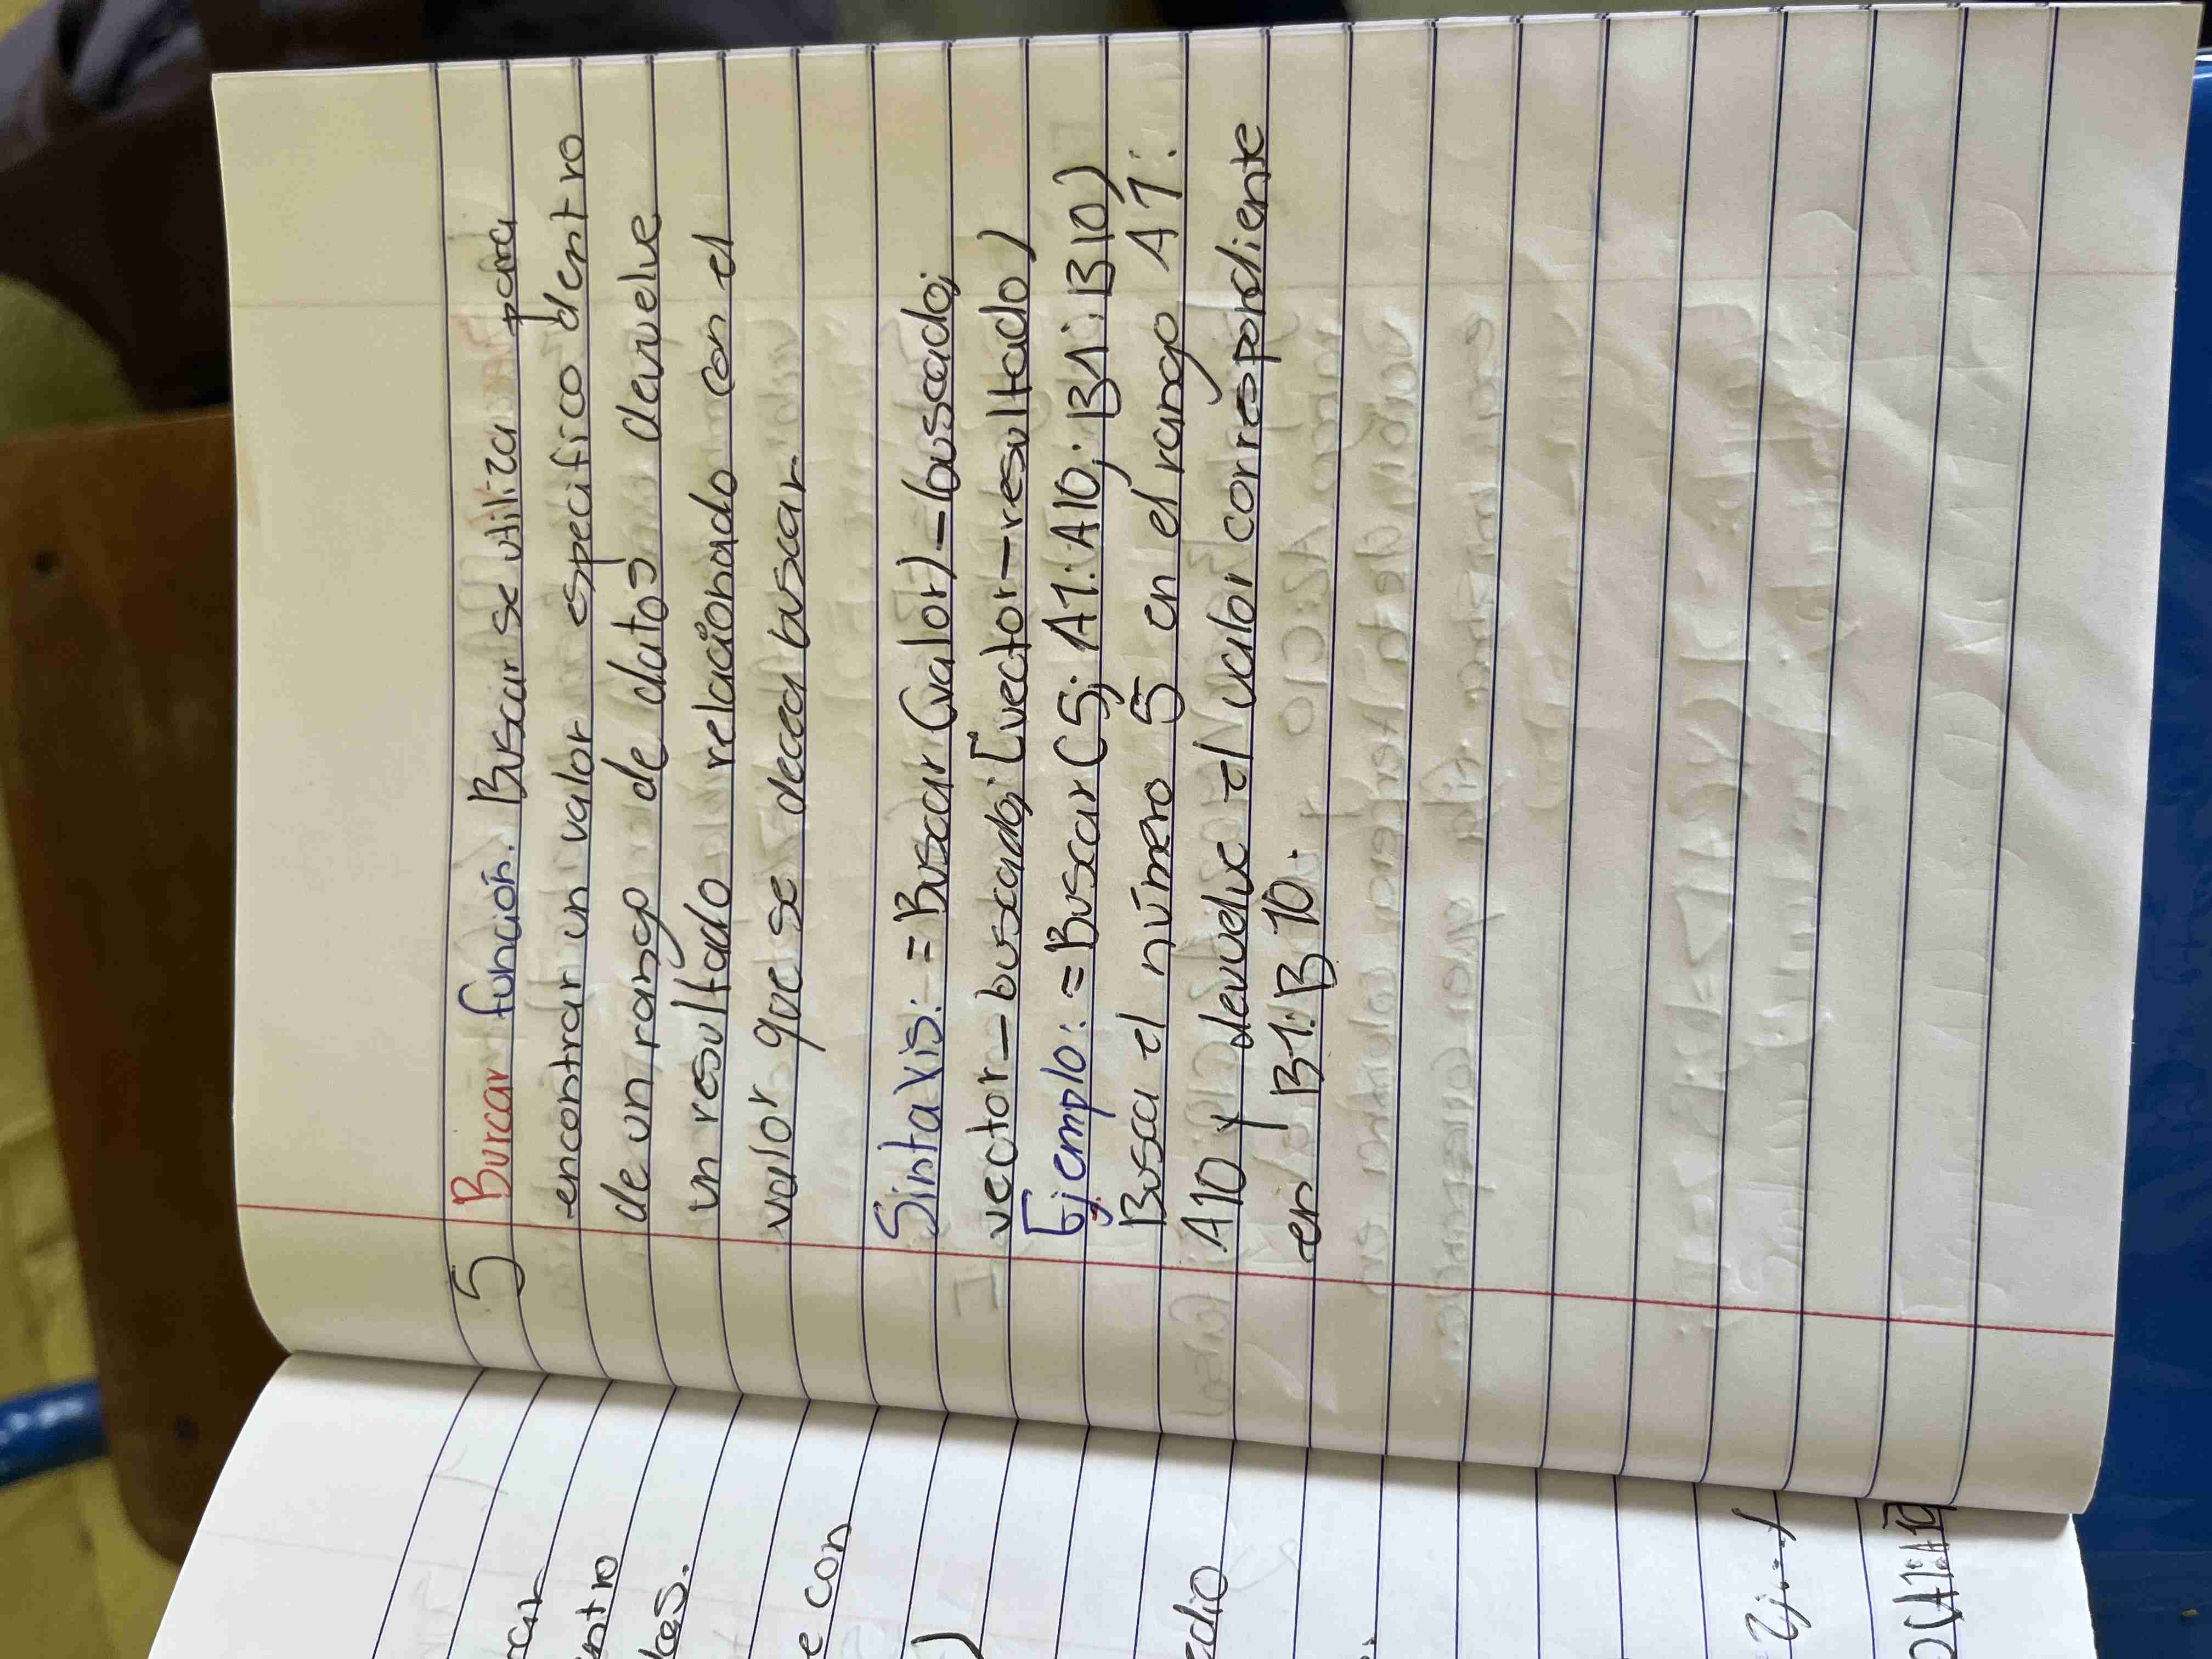 5 Burcar función. Buscar se utiliza para
encontrar un valor especifico dentro
de un rango de datos devuelve
un resultado relacionado con el
valor que se decea buscar.
Sintaxis: =Buscar (valor) - buscado;
vector - buscado; [vector - resultado)
Ejemplo: =Buscar (5; A1:A10; B1:B10)
Busca el número 5 en el rango A1:
A10 y devuelve el valor correspondiente
en B1:B10.
rcar
ntro
les.
e con
)
edio